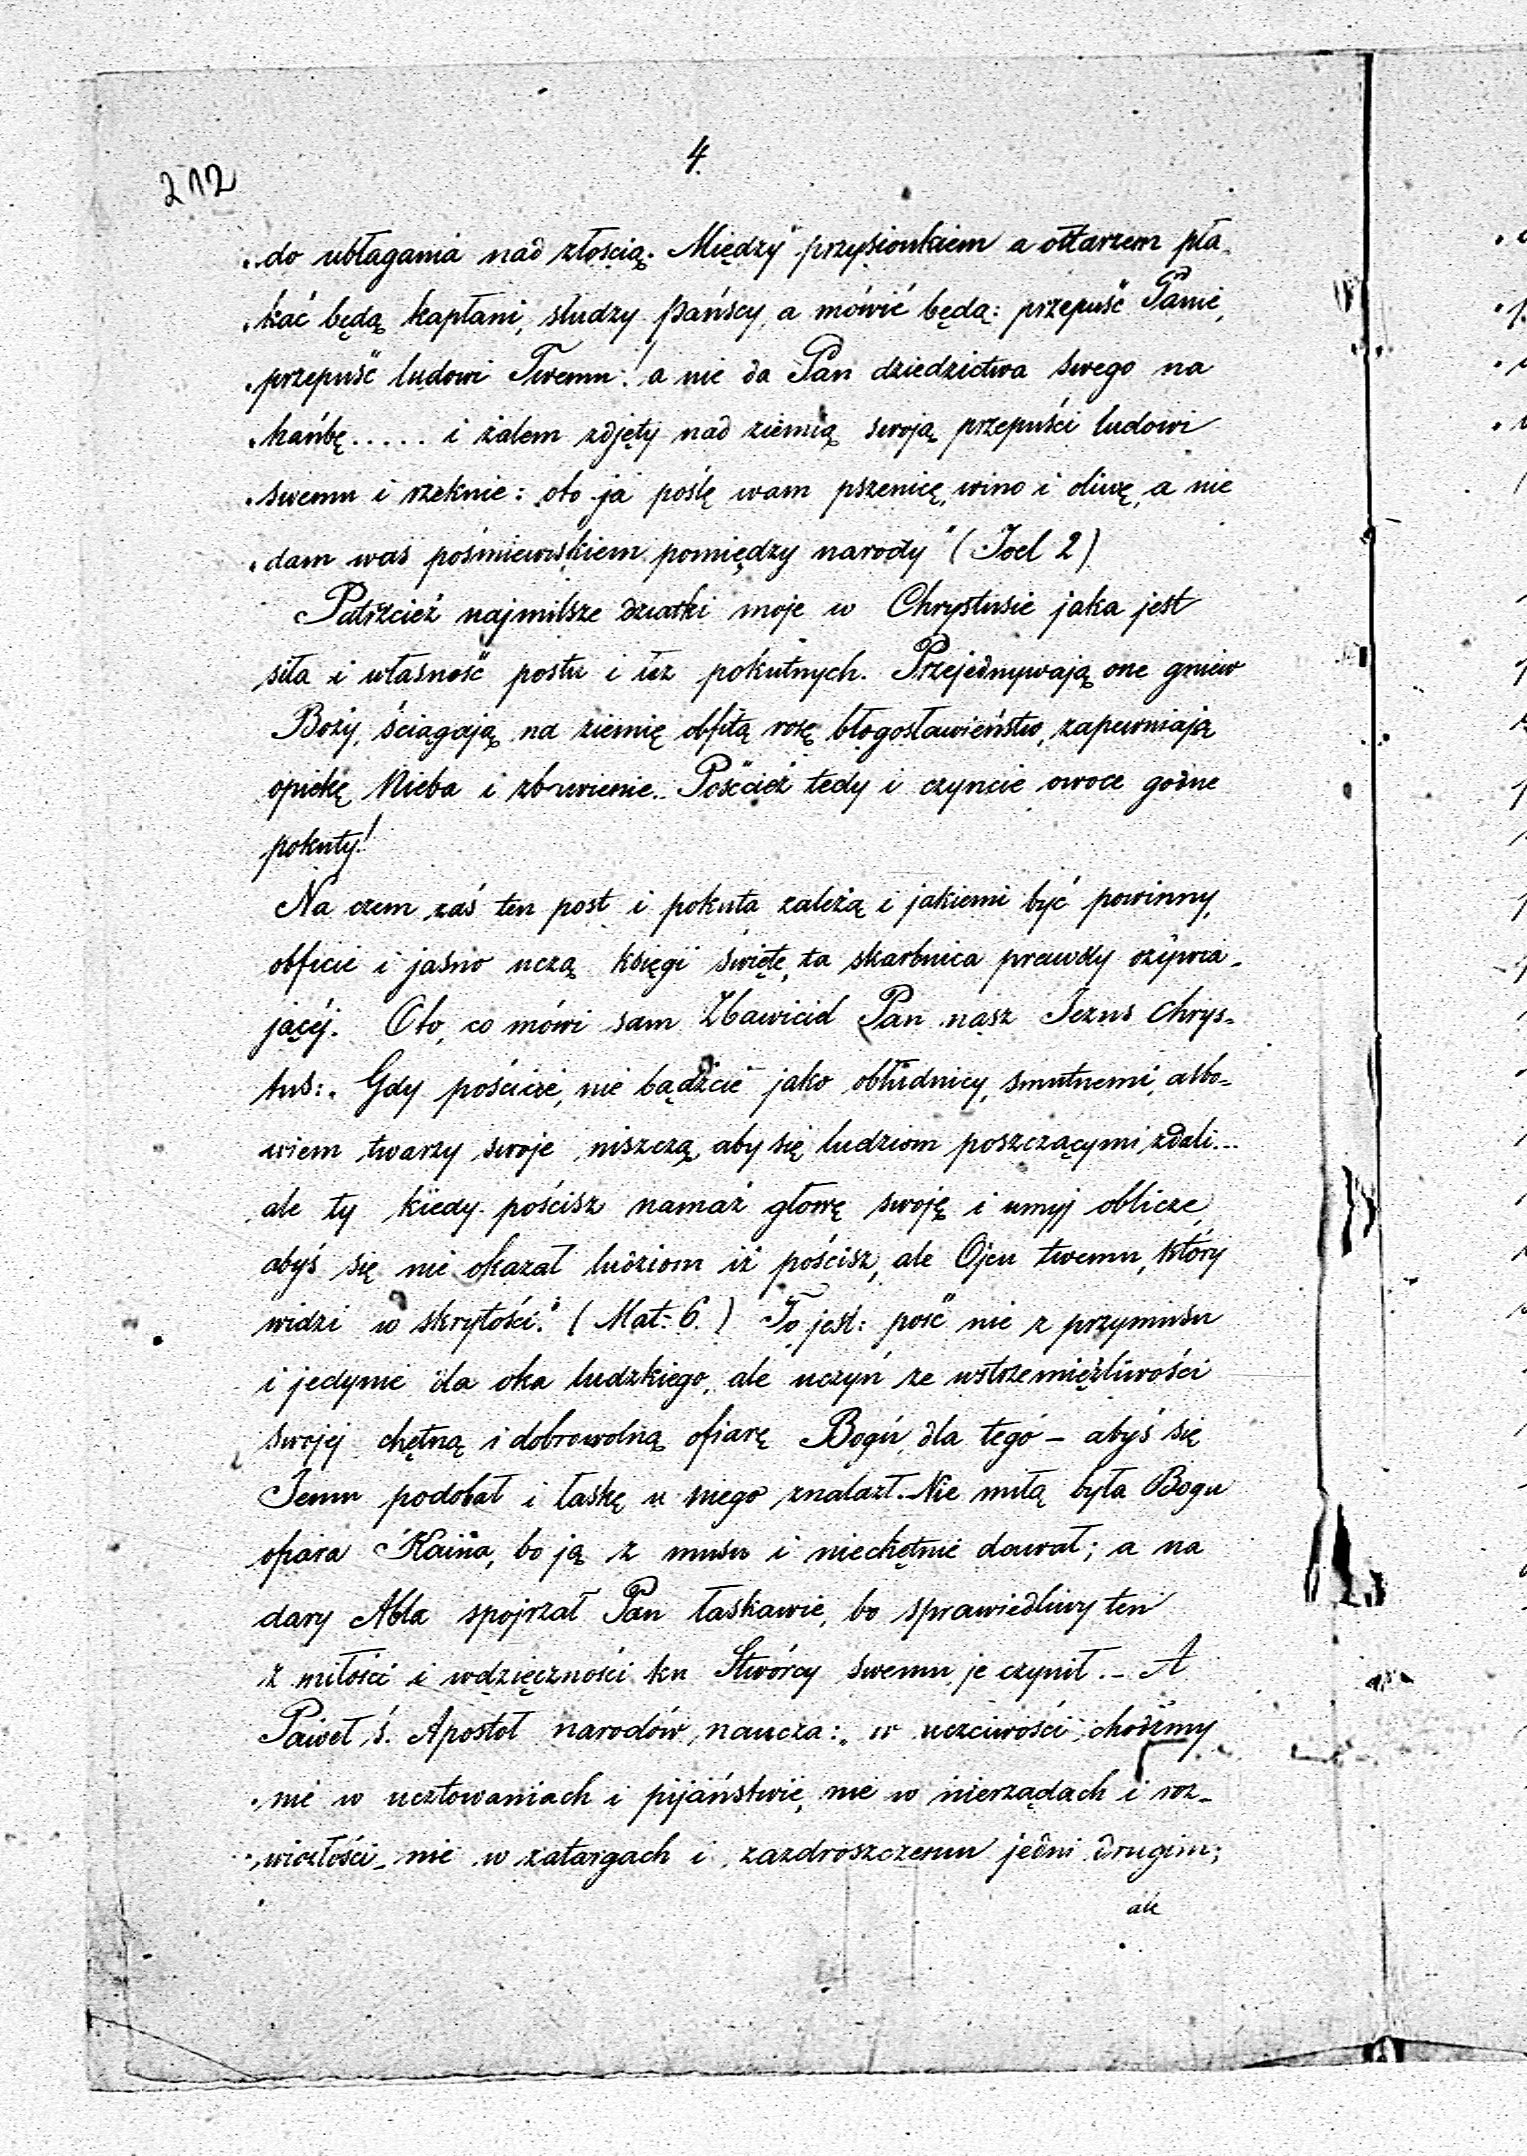 4.
212
„do ubłagania nad złością. Między przysionkiem a ołtarzem pła-
„kać będą kapłani, słudzy Pańscy, a mówić będą: przepuść Panie,
„przepuść ludowi Twemu! a nie da Pan dziedzictwa swego na
„hańbę..... i żalem zdjęty nad ziemią swoją przepuści ludowi
„swemu i rzeknie: oto ja poślę wam pszenicę, wino i oliwę, a nie
„dam was pośmiewiskiem pomiędzy narody" (Joel 2)
Patrzcież najmilsze dziatki moje w Chrystusie jaka jest
siła i własność postu i łez pokutnych. Przejednywają one gniew
Boży, ściągają na ziemię obfitą rosę błogosławieństw, zapewniają
opiekę Nieba i zbawienie. Pośćcież tedy i czyncie owoce godne
pokuty!
Na czem zaś ten post i pokuta zależą i jakiemi być powinny,
obficie i jasno uczą księgi święte, ta skarbnica prawdy ożywia-
jącéj. Oto, co mówi sam Zbawiciel Pan nasz Jezus Chrys-
tus: „Gdy pościcie, nie bądźcie jako obłudnicy, smutnemi, albo-
wiem twarzy swoje niszczą, aby się ludziom poszczącymi zdali...
ale ty kiedy pościsz namaż głowę swoję i umyj oblicze,
abyś się nie okazał ludziom iż pościsz, ale Ojcu twemu, który
widzi w skrytości." (Mat: 6.) To jest: pość nie z przymusu
i jedynie dla oka ludzkiego, ale uczyń ze wstrzemięźliwości
swojej chętną i dobrowolną ofiarę Bogu, dla tego – abyś się
Jemu podobał i łaskę u niego znalazł. Nie miłą była Bogu
ofiara Kaina, bo ją z musu i niechętnie dawał; a na
dary Abla spojrzał Pan łaskawie, bo sprawiedliwy ten
z miłości i wdzięczności ku Stwórcy swemu je czynił. – A
Paweł ś. Apostoł narodów, naucza: „w uczciwości chodźmy
„nie w ucztowaniach i pijaństwie, nie w nierządach i roz-
„wiozłości, nie w zatargach i zazdroszczeniu jedni drugim;
ale